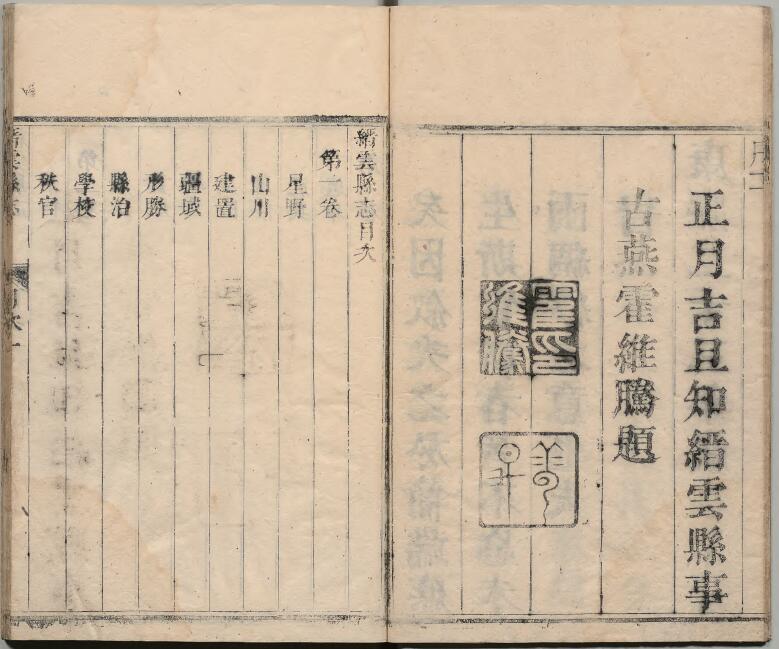 正月吉旦知縉雲縣事
古燕霍維騰題
霍印
維騰
縉雲縣志目次
第一卷
星野
山川
建置
疆域
形勝
縣治
學校
秩官